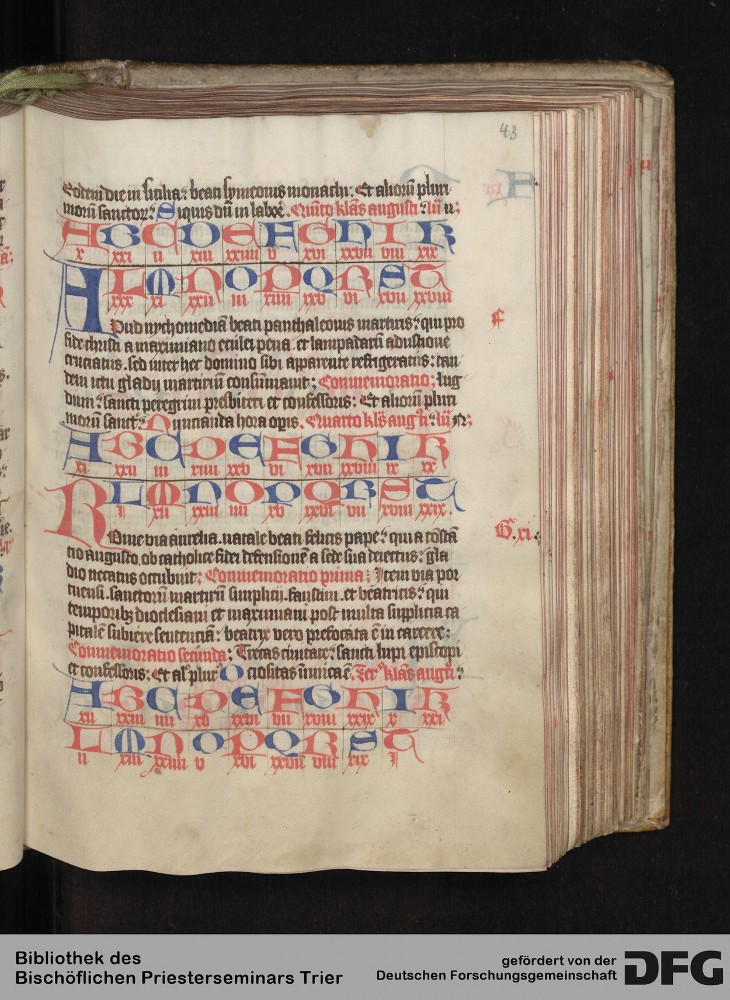 43
Eodem die in sicilia: beati symeonis monachi. Et alioru pluri
moru sanctor: Siquis dū in labxe. Quīto klās augusti: lii n:
A B C D E F G H I K
x xxi ii xiii xxiiii v xvi xxvii viii xix
L M N O P Q R S T
xxx xi xxii iii xiiii xxv vi xvii xxviii
f
Apud nychomediā beati panthaleonis martiris: qui pro
fide christi a maximiano eculei pena et lampadarū adustione
cruciatus. sed inter hec domino sibi apparente refrigeratus: tan
dem ictu gladii martiriū consūmauit; Commemoratio: lug
dum: sancti peregrini presbiteri et confessoris: Et aliorū pluri
morū sanct: Nuncianda hora opis. Quarto kls augti: lii n:
A B C D E F G H I K
xi xxii iii xiiii xxv vi xvii xxviii ix xx
L M N O P Q R S T
i xii xxiii xv xxvi vii xviii xxix
G xi
Rome via aurelia. natale beati felicis pape: qui a cōstā
cio augusto. ob catholice fidei defensionē a sede sua deiectus: gla
dio necatus occubuit; Commemoratio prima: Item via por
tuensi. sanctorū martirū simplicii. faustini. et beatricis: qui
temporibz diocletiani et maximiani post multa supplicia ca
pitalē subiere sententiā: beatrix vero prefocata ē in carcere:
Commemoratio secunda; Trecas ciuitate: sancti lupi episcopi
et confessoris: Et al plur Ociositas inimica ē. Ter klas augti:
A B C D E F G H I K
xii xxiii iiii xv xxvi vii xviii xxix x xxi
L M N O P Q R S T
ii xiii xxiiii v xvi xxvii viii xix i
Bibliothek des
Bischöflichen Priesterseminars Trier
gefördert von der
Deutschen Forschungsgemeinschaft
DFG